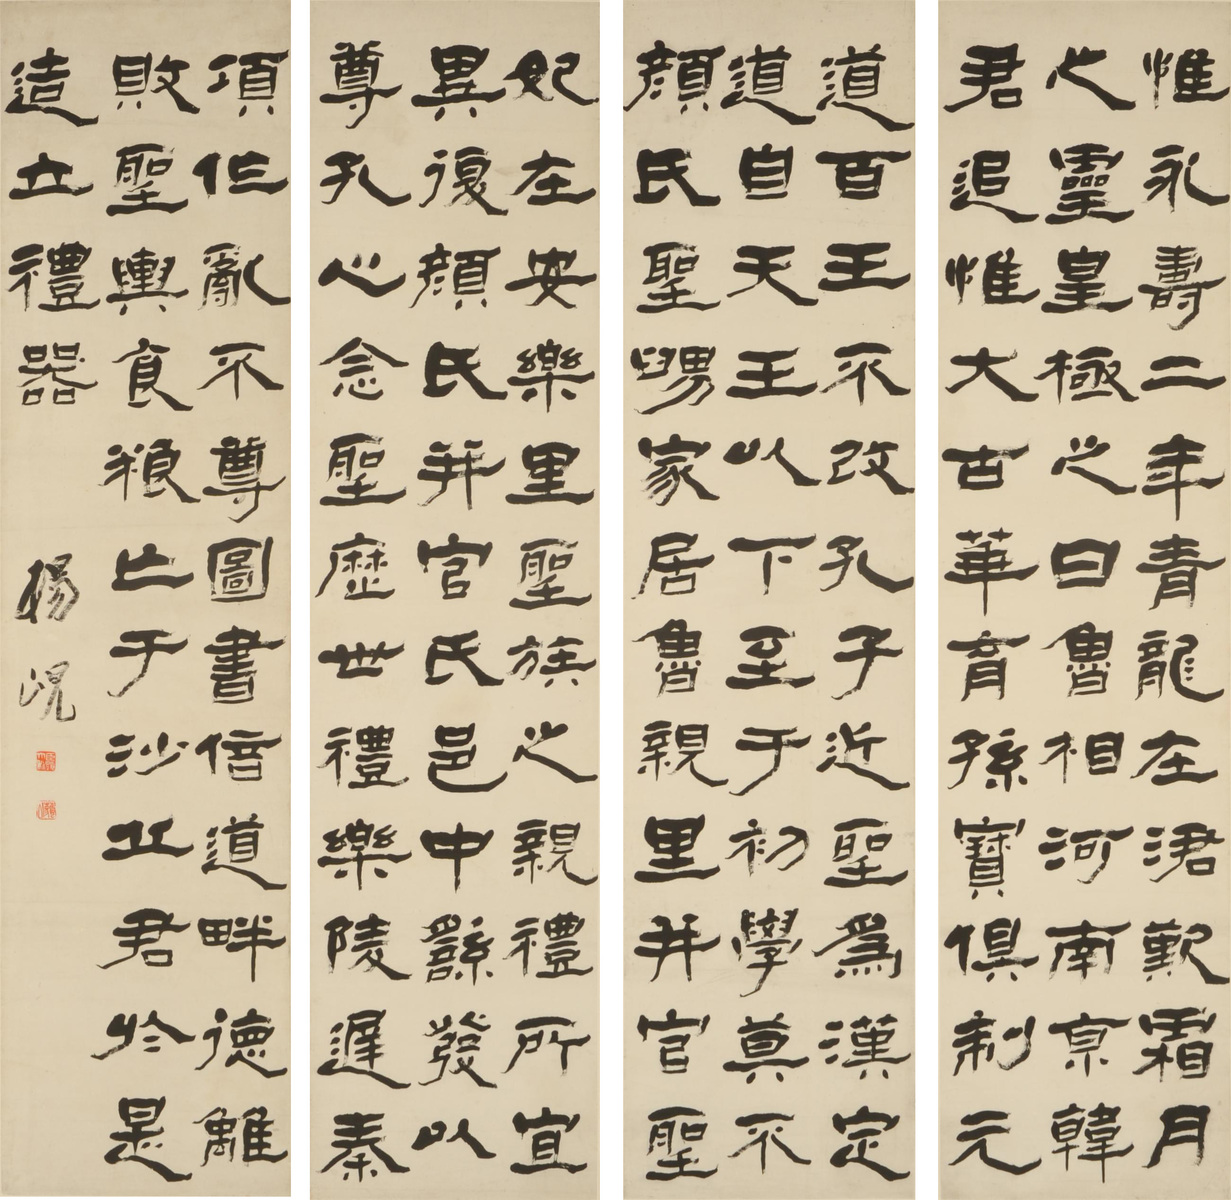 惟永壽二年青龍在涒歎霜月
之靈皇極之日魯相河南京韓
君追惟大古華胥孫寶俱制元
道百王不改孔子近聖為漢定
道自天王以下至于初學莫不
顏氏聖舅家居魯親里并官聖
妃在安樂里聖族之親禮所宜
異復顏氏并官氏邑中繇發以
尊孔心念聖歷世禮樂陵遲秦
項作亂不尊圖書倍道畔德離
敗聖輿食粮亡于沙丘君於是
造立禮器
楊峴